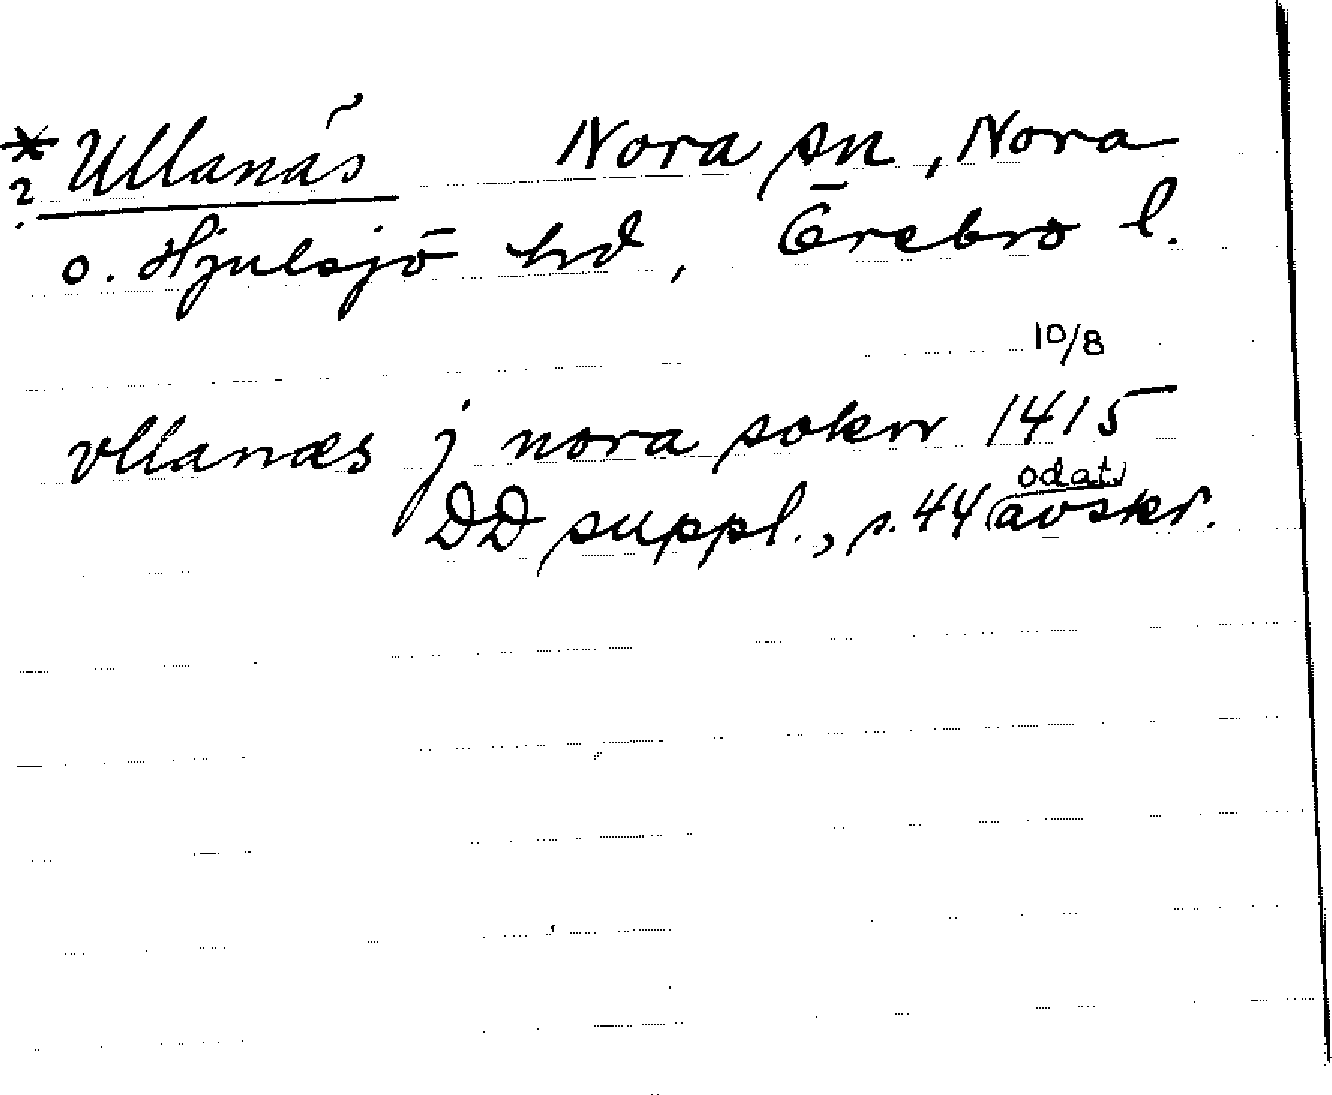 * Ullanäs Nora sn, Nora
? o. Hjulsjö hd, Örebro l.
10/8
vllanæs j nora sokn 1415
DD suppl., s. 44 (odat. avskr.